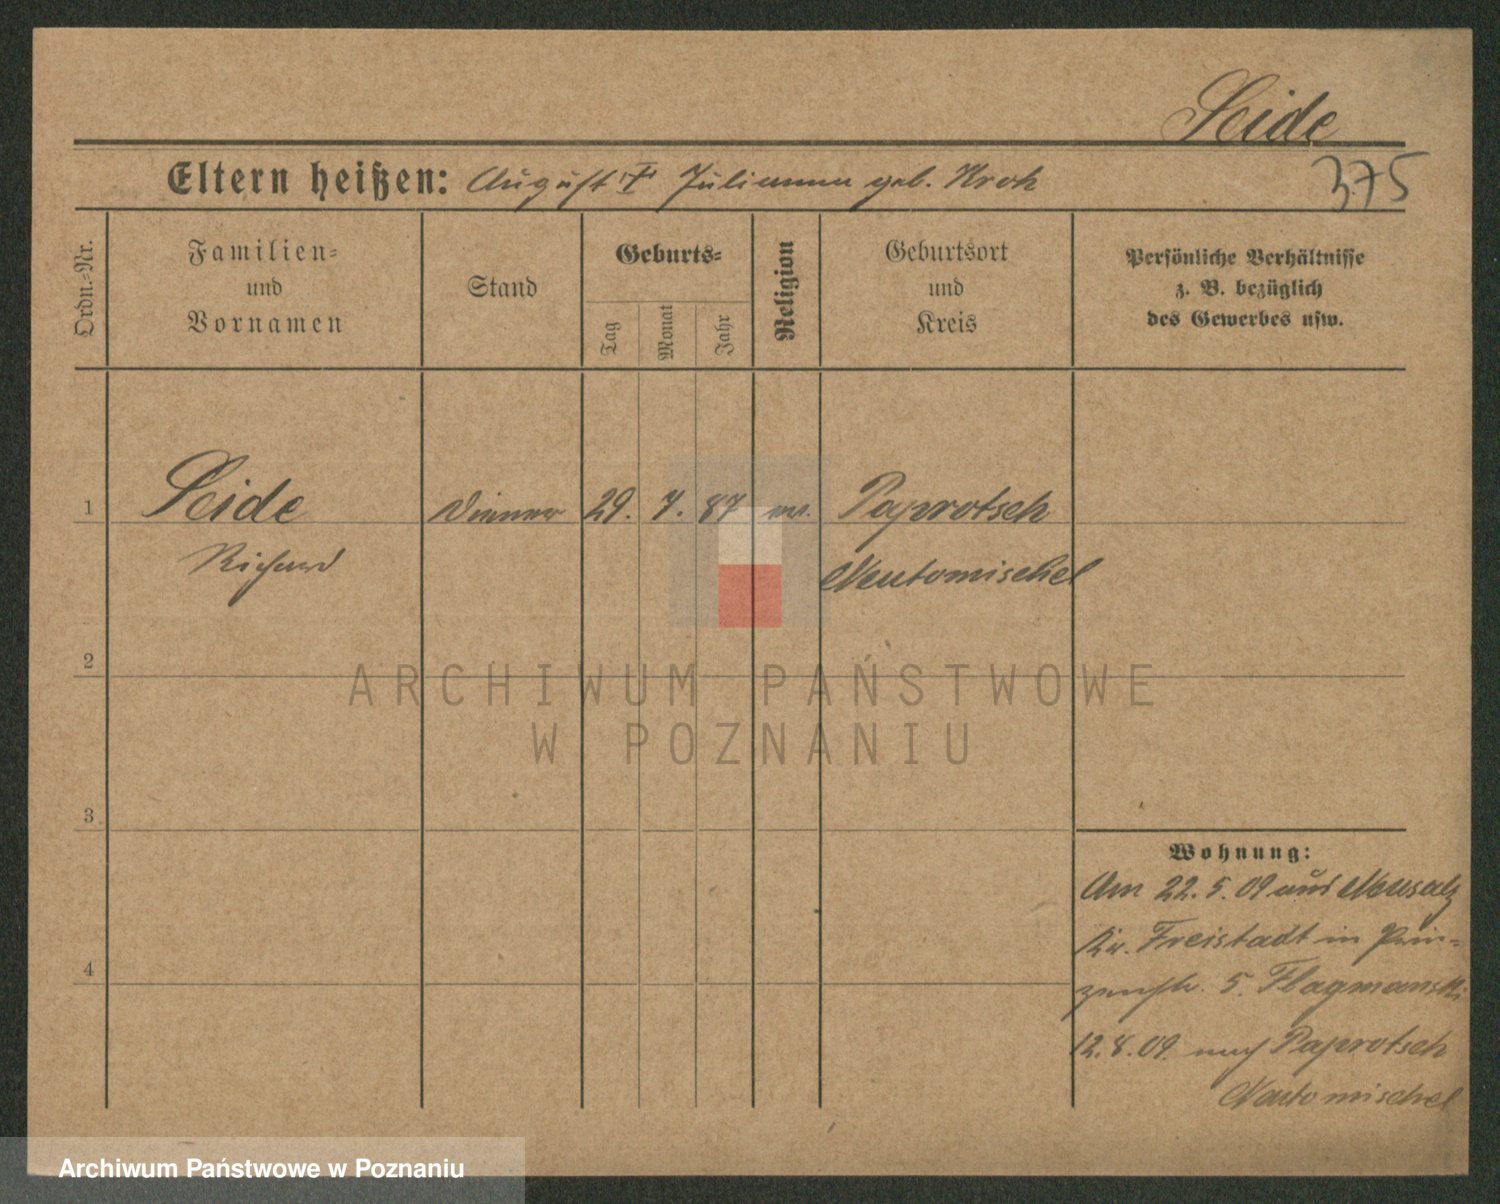 Seide
375
Eltern heißen: August † Julianna geb. Kroh
Ordn.-Nr.
Familien-
und
Vornamen
Stand
Geburts-
Tag
Monat
Jahr
Religion
Geburtsort
und
Kreis
Persönliche Verhältnisse
z. B. bezüglich
des Gewerbes usw.
1
Seide
Diener
29. 7. 87
ev.
Paprotsch
Richard
Neutomischel
2
3
4
Wohnung:
Am 22.5.09 aus Neusalz
Kr. Freistadt in Prin-
zenstr. 5. Flagmanski
12.8.09. nach Paprotsch
Neutomischel
ARCHIWUM PAŃSTWOWE
W POZNANIU
Archiwum Państwowe w Poznaniu